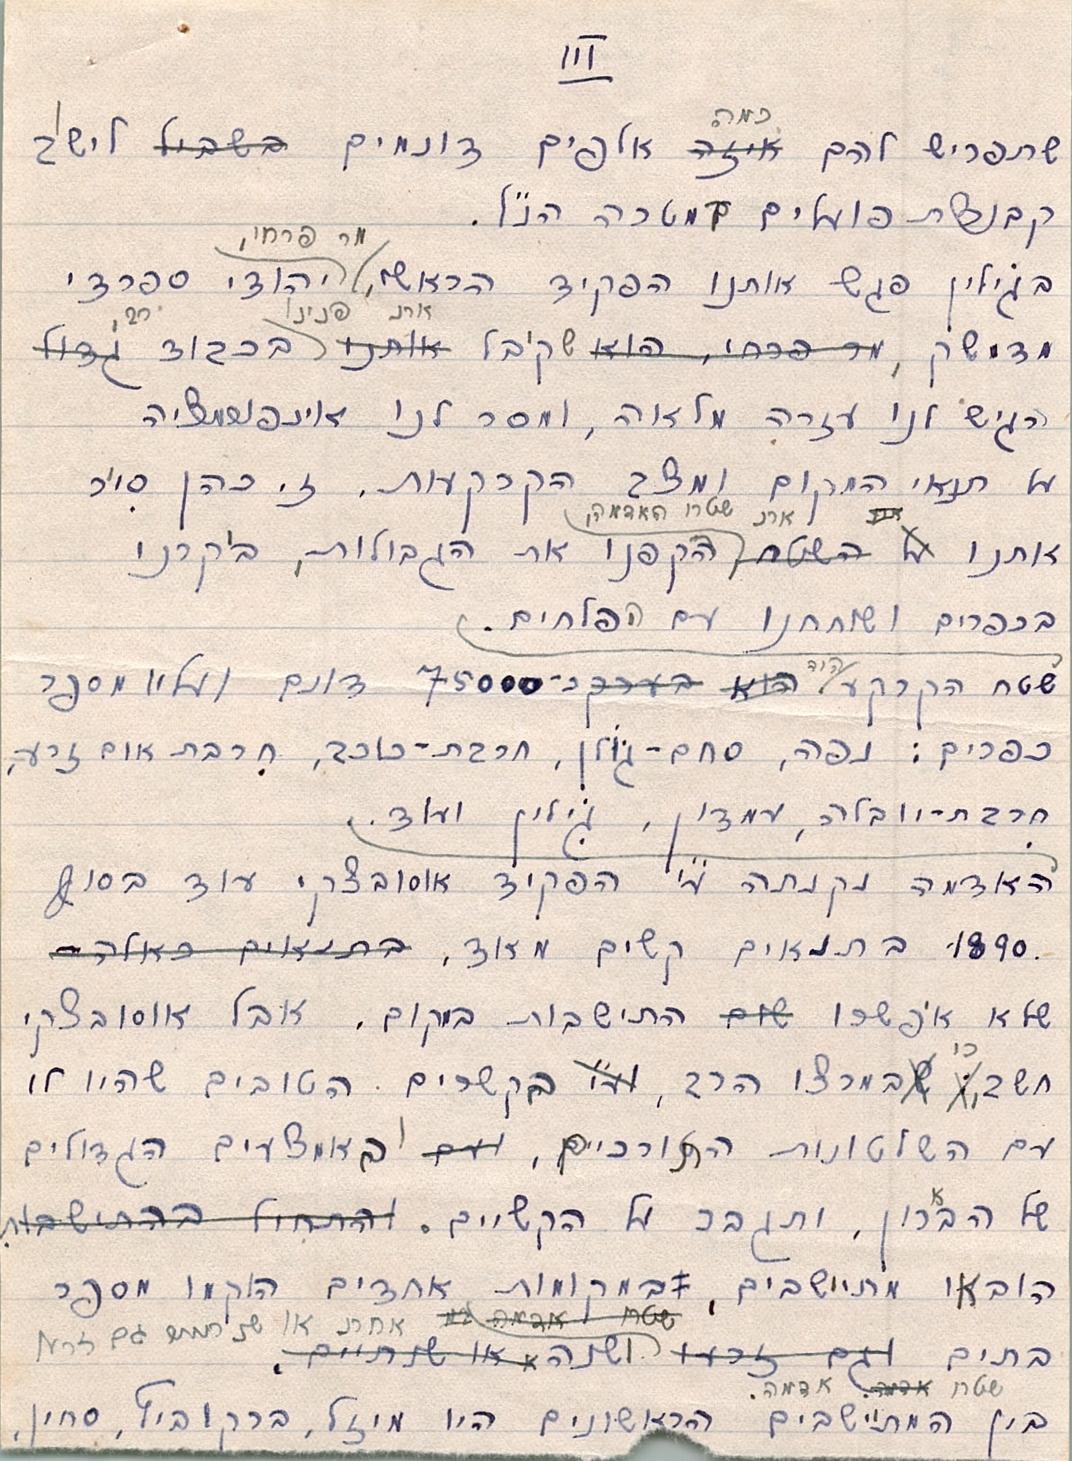 VII
כמה
שתפריש להם איזה אלפים דונמים בשביל לישב
קבוצת פועלים למטרה הנ"ל.
מר פרחי,
בג'ילין פגש אותנו הפקיד הראשי, יהודי ספרדי
את פנינו רב,
מדמשק, מר פרחי, הוא שקיבל אותנו בכבוד גדול
הגיש לנו עזרה מלאה, ומסר לנו אינפורמציה
על תנאי המקום ומצב הקרקעות. זיו כהן סייר
את שטח האדמה,
אותנו על השטח הקפנו את הגבולות, ביקרנו
בכפרים ושוחחנו עם הפלחים.
היה
שטח הקרקע הוא בערך כ-75000 דונם ועליו מספר
כפרים: נפה, סחם-ג'ולן, חרבת-כוכב, חרבת אום זרע,
חרבת-יובלה, עמדון, ג'ילין ועוד.
האדמה נקנתה ע"י הפקיד אוסובצקי עוד בסוף
1890. בתנאים קשים מאוד, בתנאים כאלה
שלא איפשרו שום התישבות במקום. אבל אוסובצקי
כי
חשב, שבמרצו הרב, וע"י בקשרים הטובים שהיו לו
עם השלטונות התורכיים, ועם ובאמצעים הגדולים
של הבארון, יתגבר על הקשיים. והתחיל בהתישבות
הובאו מתיישבים, ובמקומות אחדים הוקמו מספר
שטח אדמה אחרת או שנתיים גם זרעו
בתים וגם זרעו ושנה או שנתיים.
שטח אדמה. אדמה.
בין המתיישבים הראשונים היו מיזל, ברקוביץ, סחין,